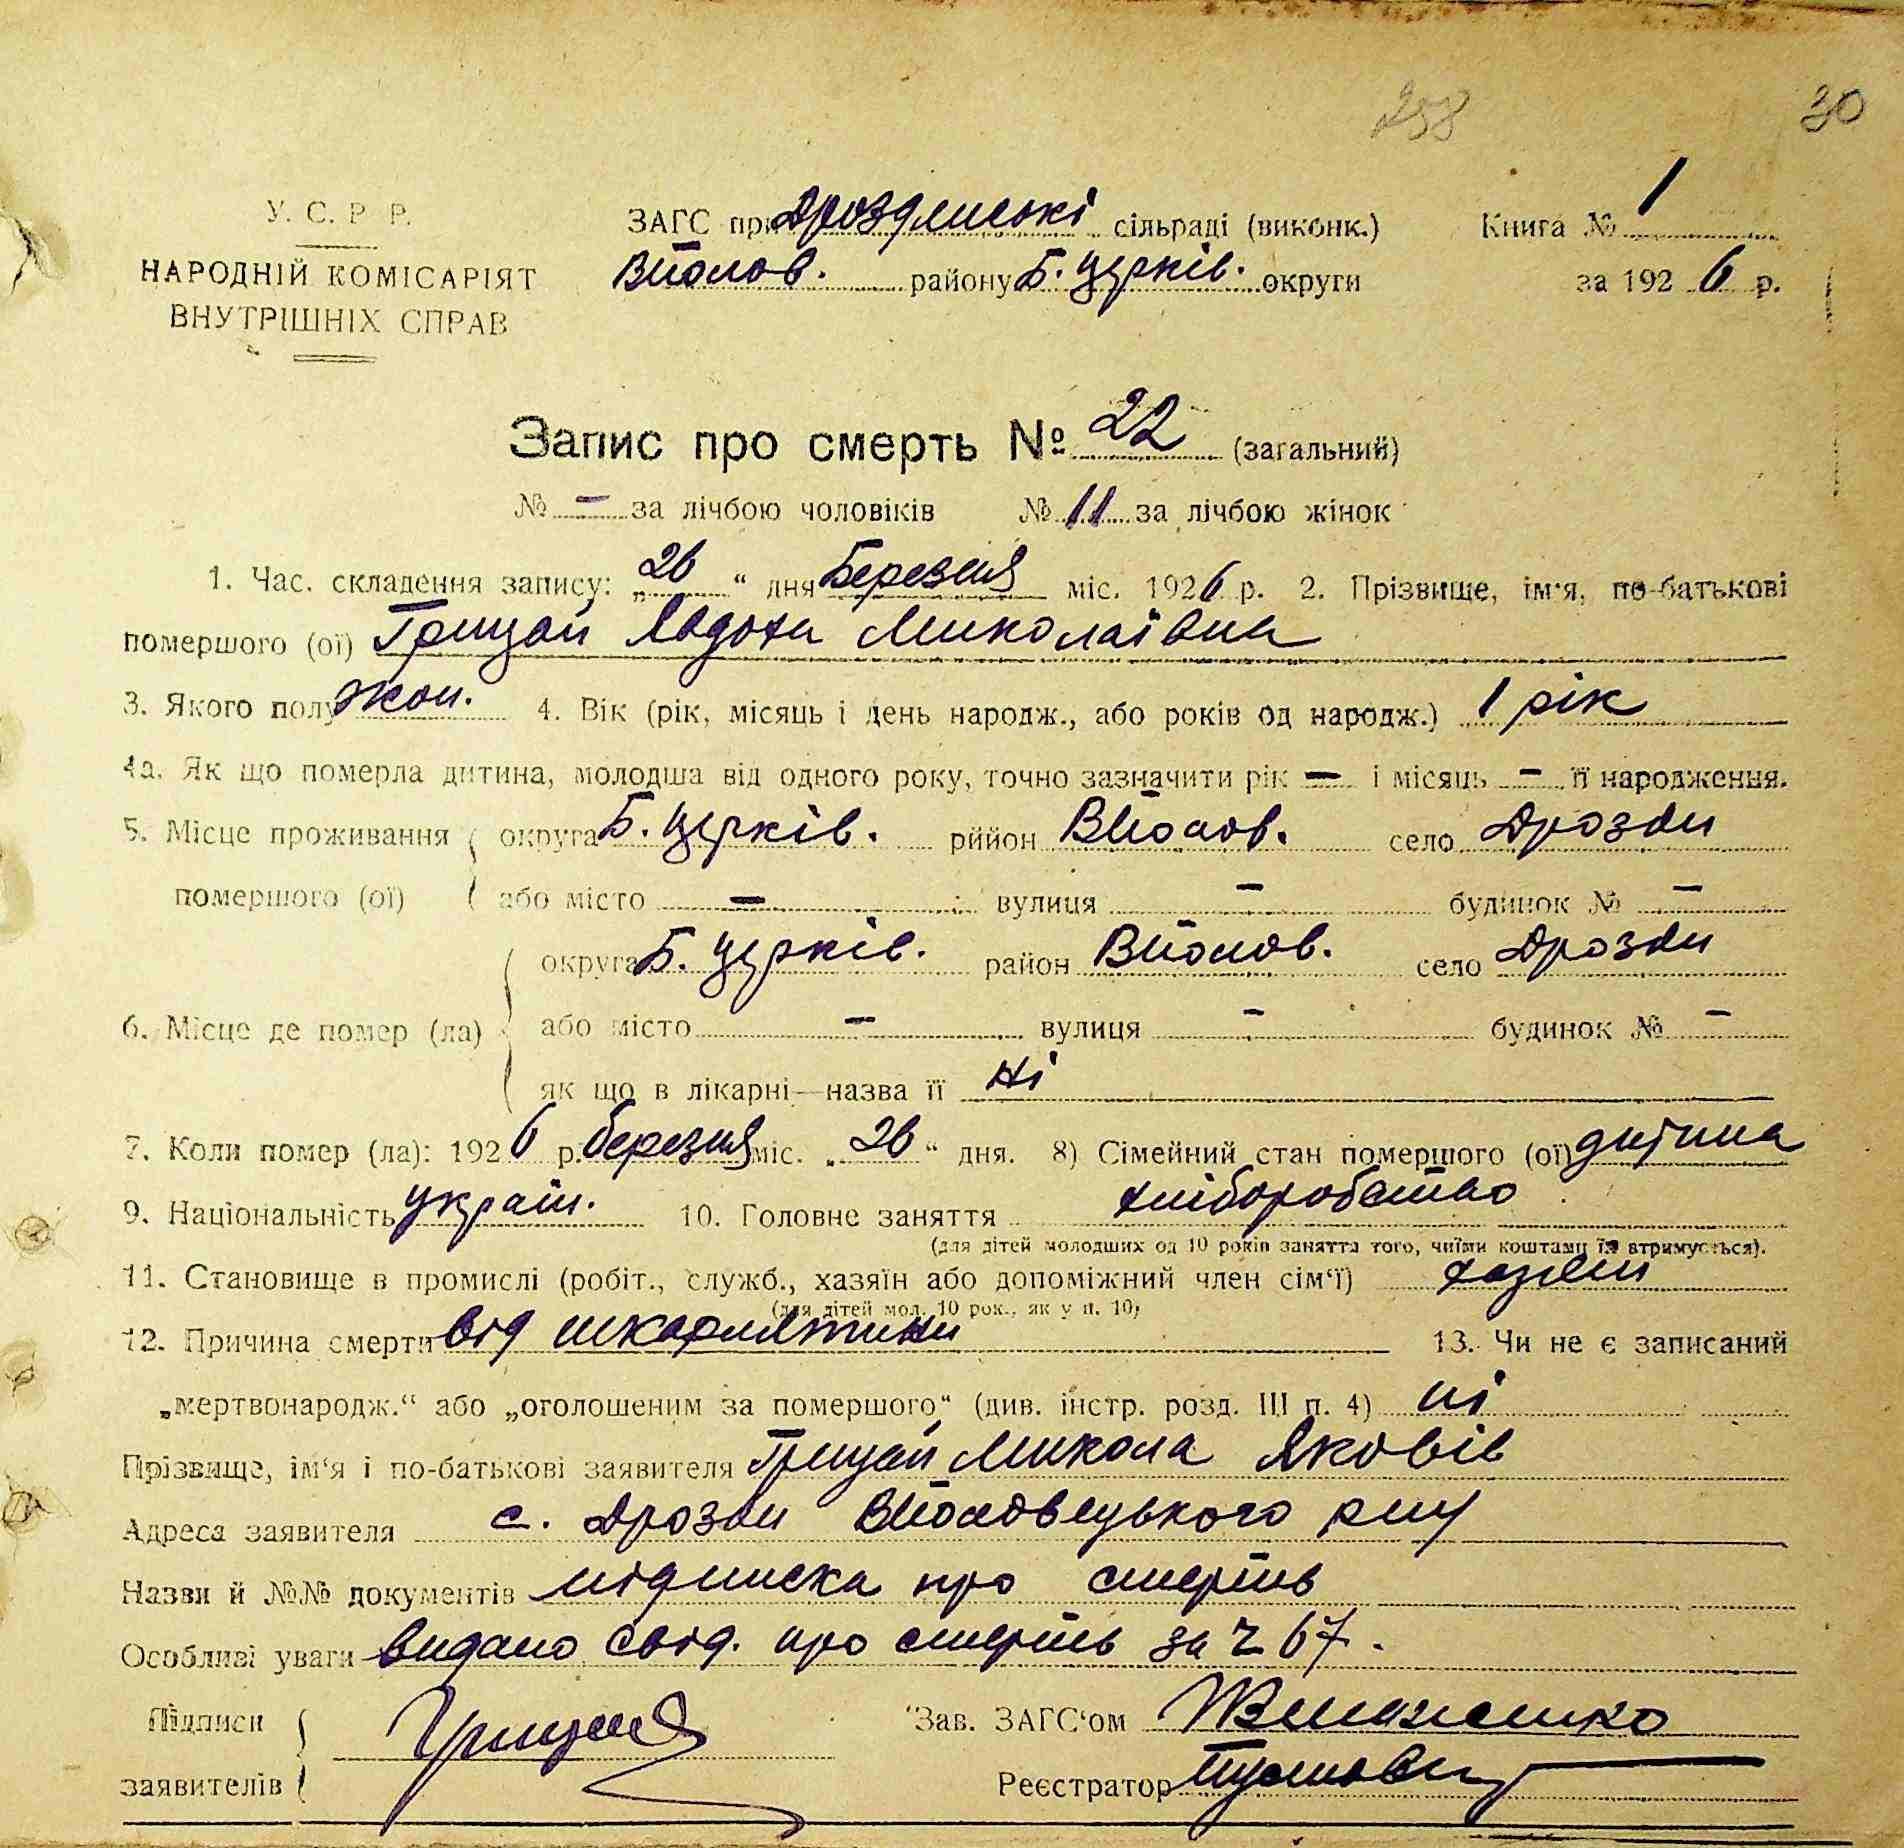 258 30
У. С. Р. Р.
НАРОДНІЙ КОМІСАРІЯТ
ВНУТРІШНІХ СПРАВ
ЗАГС при Дроздянські сільраді (виконк.) Книга № 1
району Б. Церків. округи за 1926 р.
Запис про смерть № 22 (загальний)
№ – за лічбою чоловіків № 11 за лічбою жінок
1. Час. складення запису: „26“ дня Березня міс. 1926 р. 2. Прізвище, ім'я, по-батькові
помершого (ої) Грицай Явдоха Миколаївна
3. Якого полу жін. 4. Вік (рік, місяць і день народж., або років од народж.) 1 рік
4а. Як що померла дитина, молодша від одного року, точно зазначити рік – і місяць – її народження.
5. Місце проживання округа Б. Церків. рййон село Дрозди
помершого (ої) або місто – вулиця – будинок № –
округа Б. Церків. район село Дрозди
6. Місце де помер (ла) або місто – вулиця – будинок № –
як що в лікарні—назва її ні
7. Коли помер (ла): 1926 р. березня міс. „26“ дня. 8) Сімейний стан помершого (ої) дитина
9. Національність україн. 10. Головне заняття хліборобство
(для дітей молодших од 10 років заняття того, чиїми коштами їх втримується).
11. Становище в промислі (робіт., служб., хазяїн або допоміжний член сім'ї) хазяїн
(для дітей мол. 10 рок., як у п. 10)
12. Причина смерти від шкарлятини 13. Чи не є записаний
„мертвонародж.“ або „оголошеним за помершого“ (див. інстр. розд. III п. 4) ні
Прізвище, ім'я і по-батькові заявителя Грицай Микола Яковів
Адреса заявителя с. Дрозди
Назви й №№ документів підписка про смерть
Особливі уваги видано свід. про смерть за ч 67.
Підписи Грицай Зав. ЗАГС'ом
заявителів Реєстратор